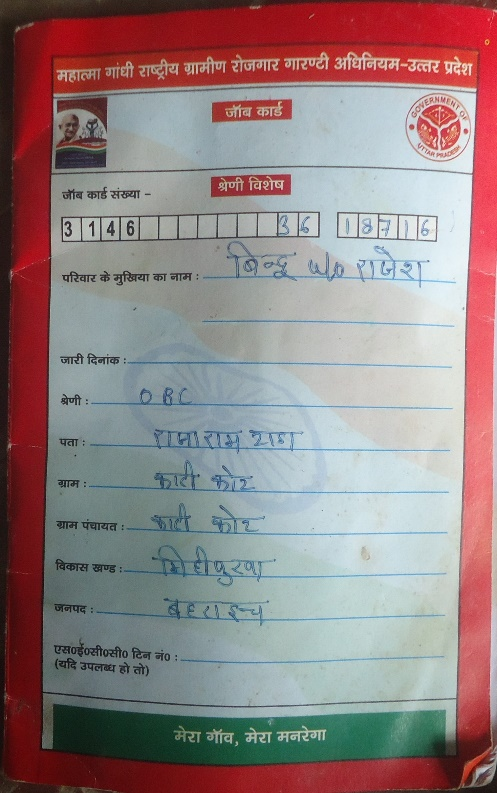 महात्मा गांधी राष्ट्रीय ग्रामीण रोजगार गारण्टी अधिनियम-उत्तर प्रदेश
जॉब कार्ड
GOVERNMENT OF UTTAR PRADESH
श्रेणी विशेष
जॉब कार्ड संख्या -
3146 36 18716
परिवार के मुखिया का नाम : बिन्दू w/o राजेश
जारी दिनांक :
श्रेणी : OBC
पता : राजाराम
ग्राम : काटी कोट
ग्राम पंचायत : काटी कोट
विकास खण्ड : मिहीपुरवा
जनपद : बहराइच
एस०ई०सी०सी० टिन नं० :
(यदि उपलब्ध हो तो)
मेरा गॉव, मेरा मनरेगा